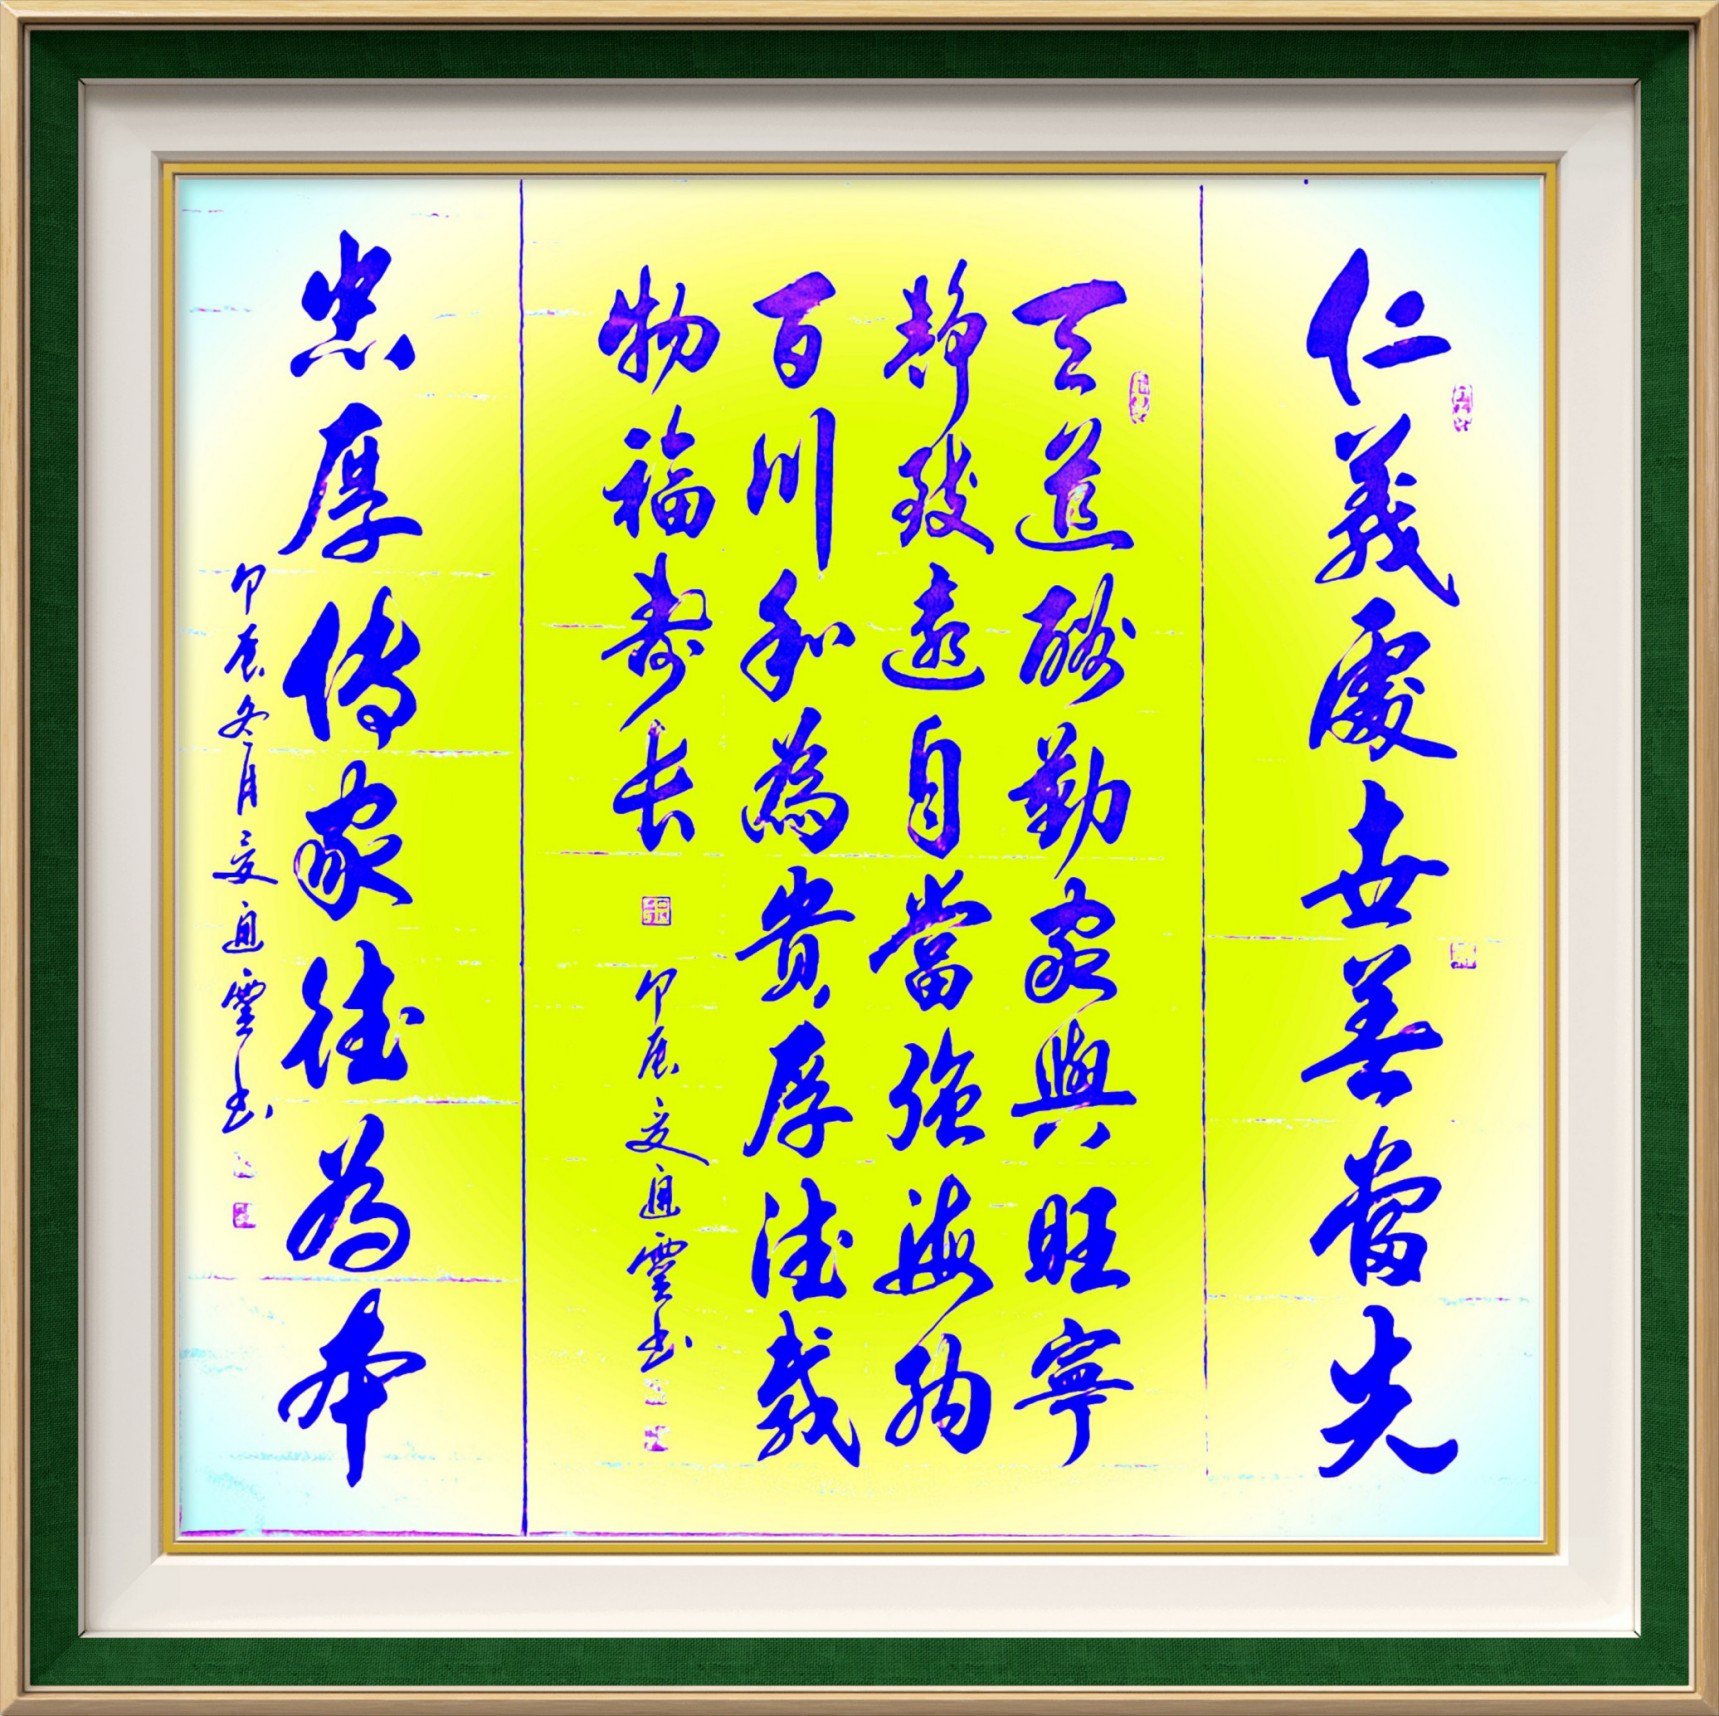 仁義處世善當先
天道酬勤家興旺寧
靜致遠自當強海納
百川和為貴厚德載
物福壽長
甲辰文通雲书
忠厚傳家德為本
甲辰冬月文通雲书